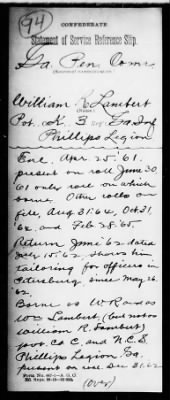 94
CONFEDERATE
Statement of Service Reference Slip.
Ga. Pen. Coms
William R. Lambert
Pvt. K. 3 Ga Inf
Phillips Legion
Enl. Apr. 25, '61.
present on roll June 30,
'61 only roll on which
borne. Other rolls on
file, Aug 31, '64, Oct. 31,
'64, and Feb 28, '65.
Return June '62 dated
May 15, '62 shows him
tailoring for officers in
Petersburg since May 26,
'62.
Borne as W R and as
Wm Lambert (but not as
William R. Lambert)
pvt. Co C, and N.C.S.
Phillips Legion, Ga.
present on use Dec 31, 62
(over)